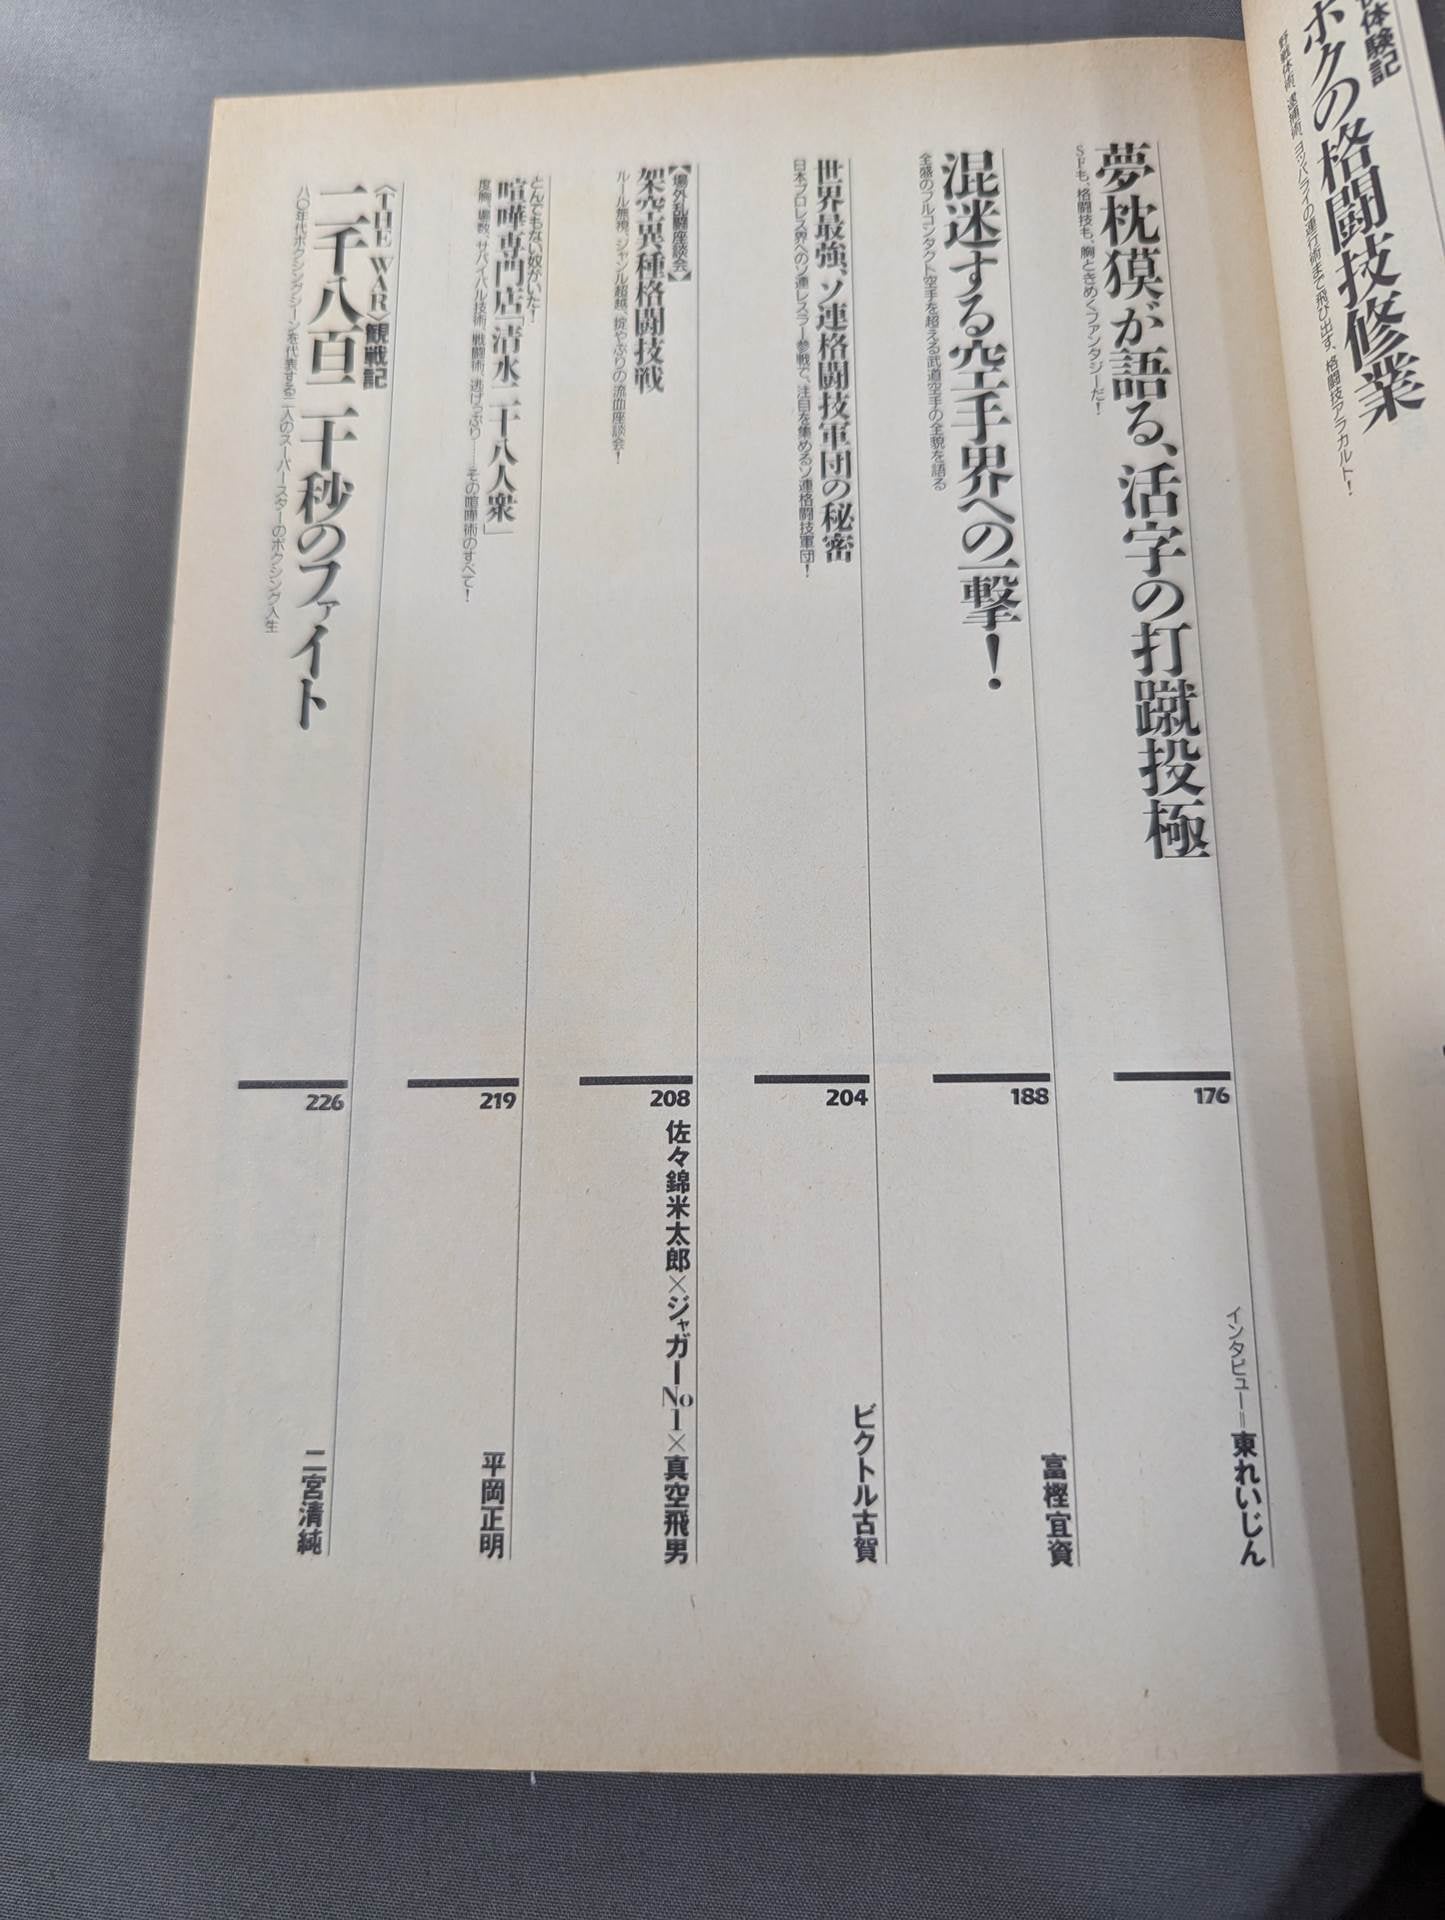 体験記
ボクの格闘技修業
野戦体術、逮捕術、ヨッパライの連行術まで飛び出す、格闘技アラカルト！
夢枕獏が語る、活字の打蹴投極
SFも、格闘技も、胸ときめくファンタジーだ！
176
インタビュー＝東れいじん
混迷する空手界への一撃！
全盛のフルコンタクト空手を超える武道空手の全貌を語る
188
富樫宜資
世界最強、ソ連格闘技軍団の秘密
日本プロレス界へのソ連レスラー参戦で、注目を集めるソ連格闘技軍団！
204
ビクトル古賀
【場外乱闘座談会】
架空異種格闘技戦
ルール無視、ジャンル超越、掟やぶりの流血座談会！
208
佐々錦米太郎×ジャガーNo1×真空飛男
とんでもない奴がいた！
喧嘩専門店「清水二十八人衆」
度胸、場数、サバイバル技術、戦闘術、逃げっぷり……その喧嘩術のすべて！
219
平岡正明
〈THE WAR〉観戦記
二千八百二十秒のファイト
八〇年代ボクシングシーンを代表する二人のスーパースターのボクシング人生
226
二宮清純